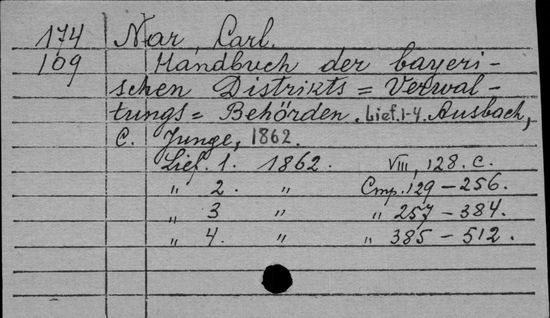 174 Nar, Carl.
109 Handbuch der bayeri-
schen Distrikts = Verwal-
tungs = Behörden. Lief. 1-4. Ausbach,
C. Junge, 1862.
Lief. 1. 1862. VIII, 128. c.
„ 2. „ Cmp. 129 – 256.
„ 3 „ „ 257 – 384.
„ 4. „ „ 385 – 512.